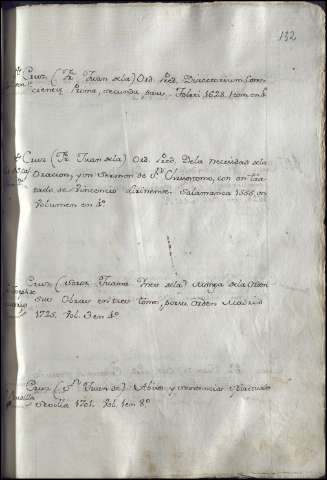 132
Cruz (Fr. Juan de la) Ord. Pred. Directorium Con-
cientiæ Prima, secunda pars. Toleti 1628. 1 tom en 4º
Cruz (Fr. Juan de la) Ord. Pred. De la necesidad de la
Oracion, y un Sermon de Sn. Chrisostomo, con un tra-
tado de Vincencio Lirinense. Salamanca 1555, un
Volumen en 4º
Cruz (Soror Juana Ines de la) Monja de la Orden
Sus Obras en tres tomos, por su orden Madrid
1725. Vol. 3 en 4º
Cruz (Sn. Juan de) Avisos y sentencias espirituales
Sevilla 1701. Vol. 1 en 8º